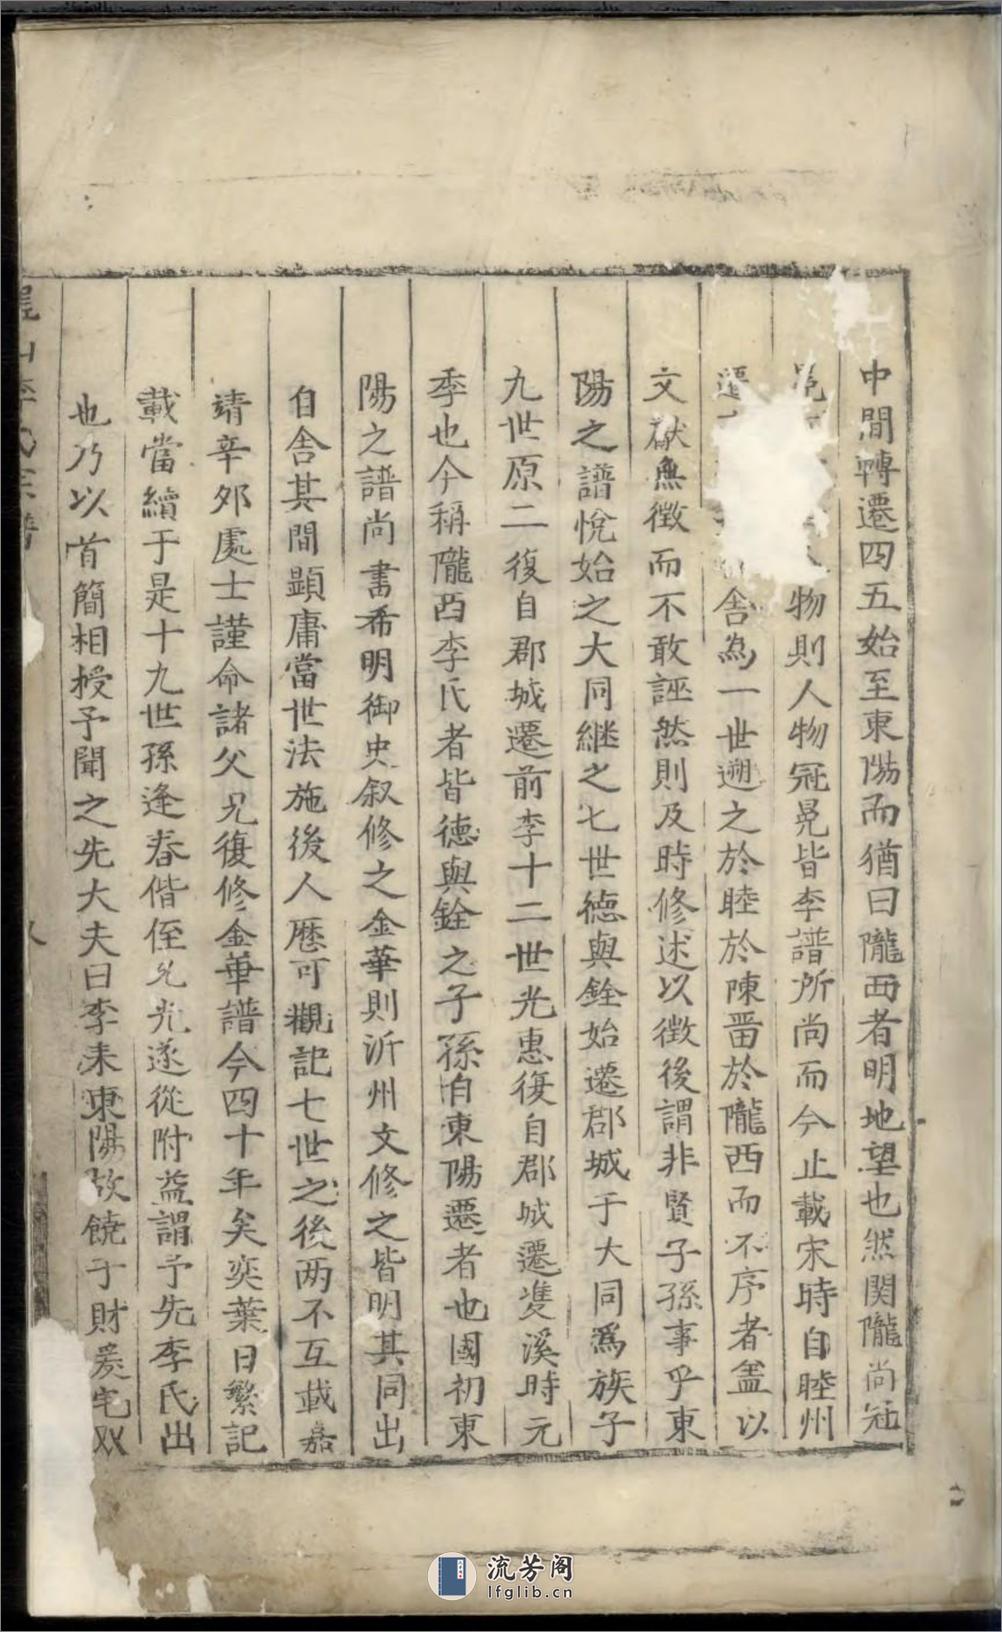 中間轉遷四五始至東陽而猶曰隴西者明地望也然関隴尚冠
冕 物則人物冠冕皆李譜所尚而今止載宋時自睦州
遷 舍為一世遡之於睦於陳畱於隴西而不序者盖以
文献無徵而不敢誣然則及時修述以徵後謂非賢子孫事乎東
陽之譜悅始之大同継之七世德與銓始遷郡城于大同爲族子
九世原二復自郡城遷前李十二世光惠復自郡城遷雙溪時元
季也今稱隴西李氏者皆德與銓之子孫自東陽遷者也國初東
陽之譜尚書希明御史叙修之金華則沂州文修之皆明其同出
自舍其間顕庸當世法施後人歷可觀記七世之後两不互載嘉
靖辛夘處士謹命諸父兄復修金華譜今四十年矣奕葉日繁記
載當續于是十九世孫逢春偕侄兆光遂從附益謂予先李氏出
也乃以首簡相授予聞之先大夫曰李未東陽故饒于財爰宅双
李氏宗譜
流芳阁
lfglib.cn